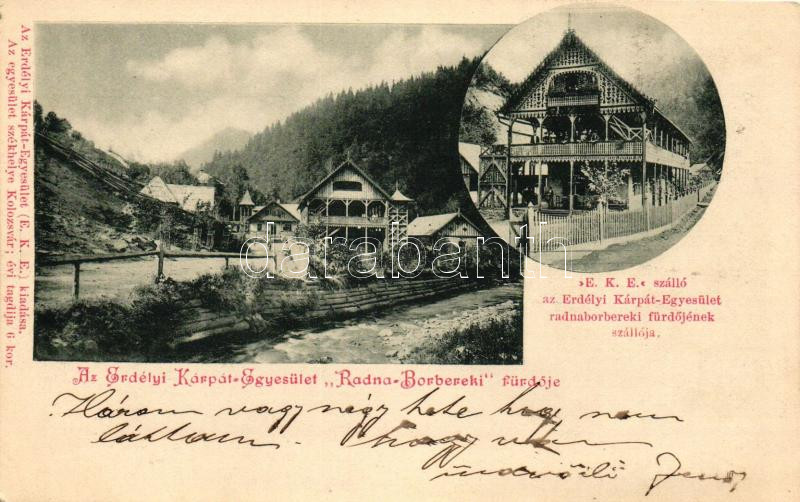 Az Erdélyi Kárpát-Egyesület (E. K. E.) kiadása.
Az egyesület székhelye Kolozsvár; évi tagdija 6 kor.
darabanth
»E. K. E.« szálló
az Erdélyi Kárpát-Egyesület
radnaborbereki fürdőjének
szállója.
Az Erdélyi Kárpát-Egyesület „Radna-Borbereki" fürdője
Három vagy négy hete hogy nem
láttam. hogy van
üdvözli Jenő